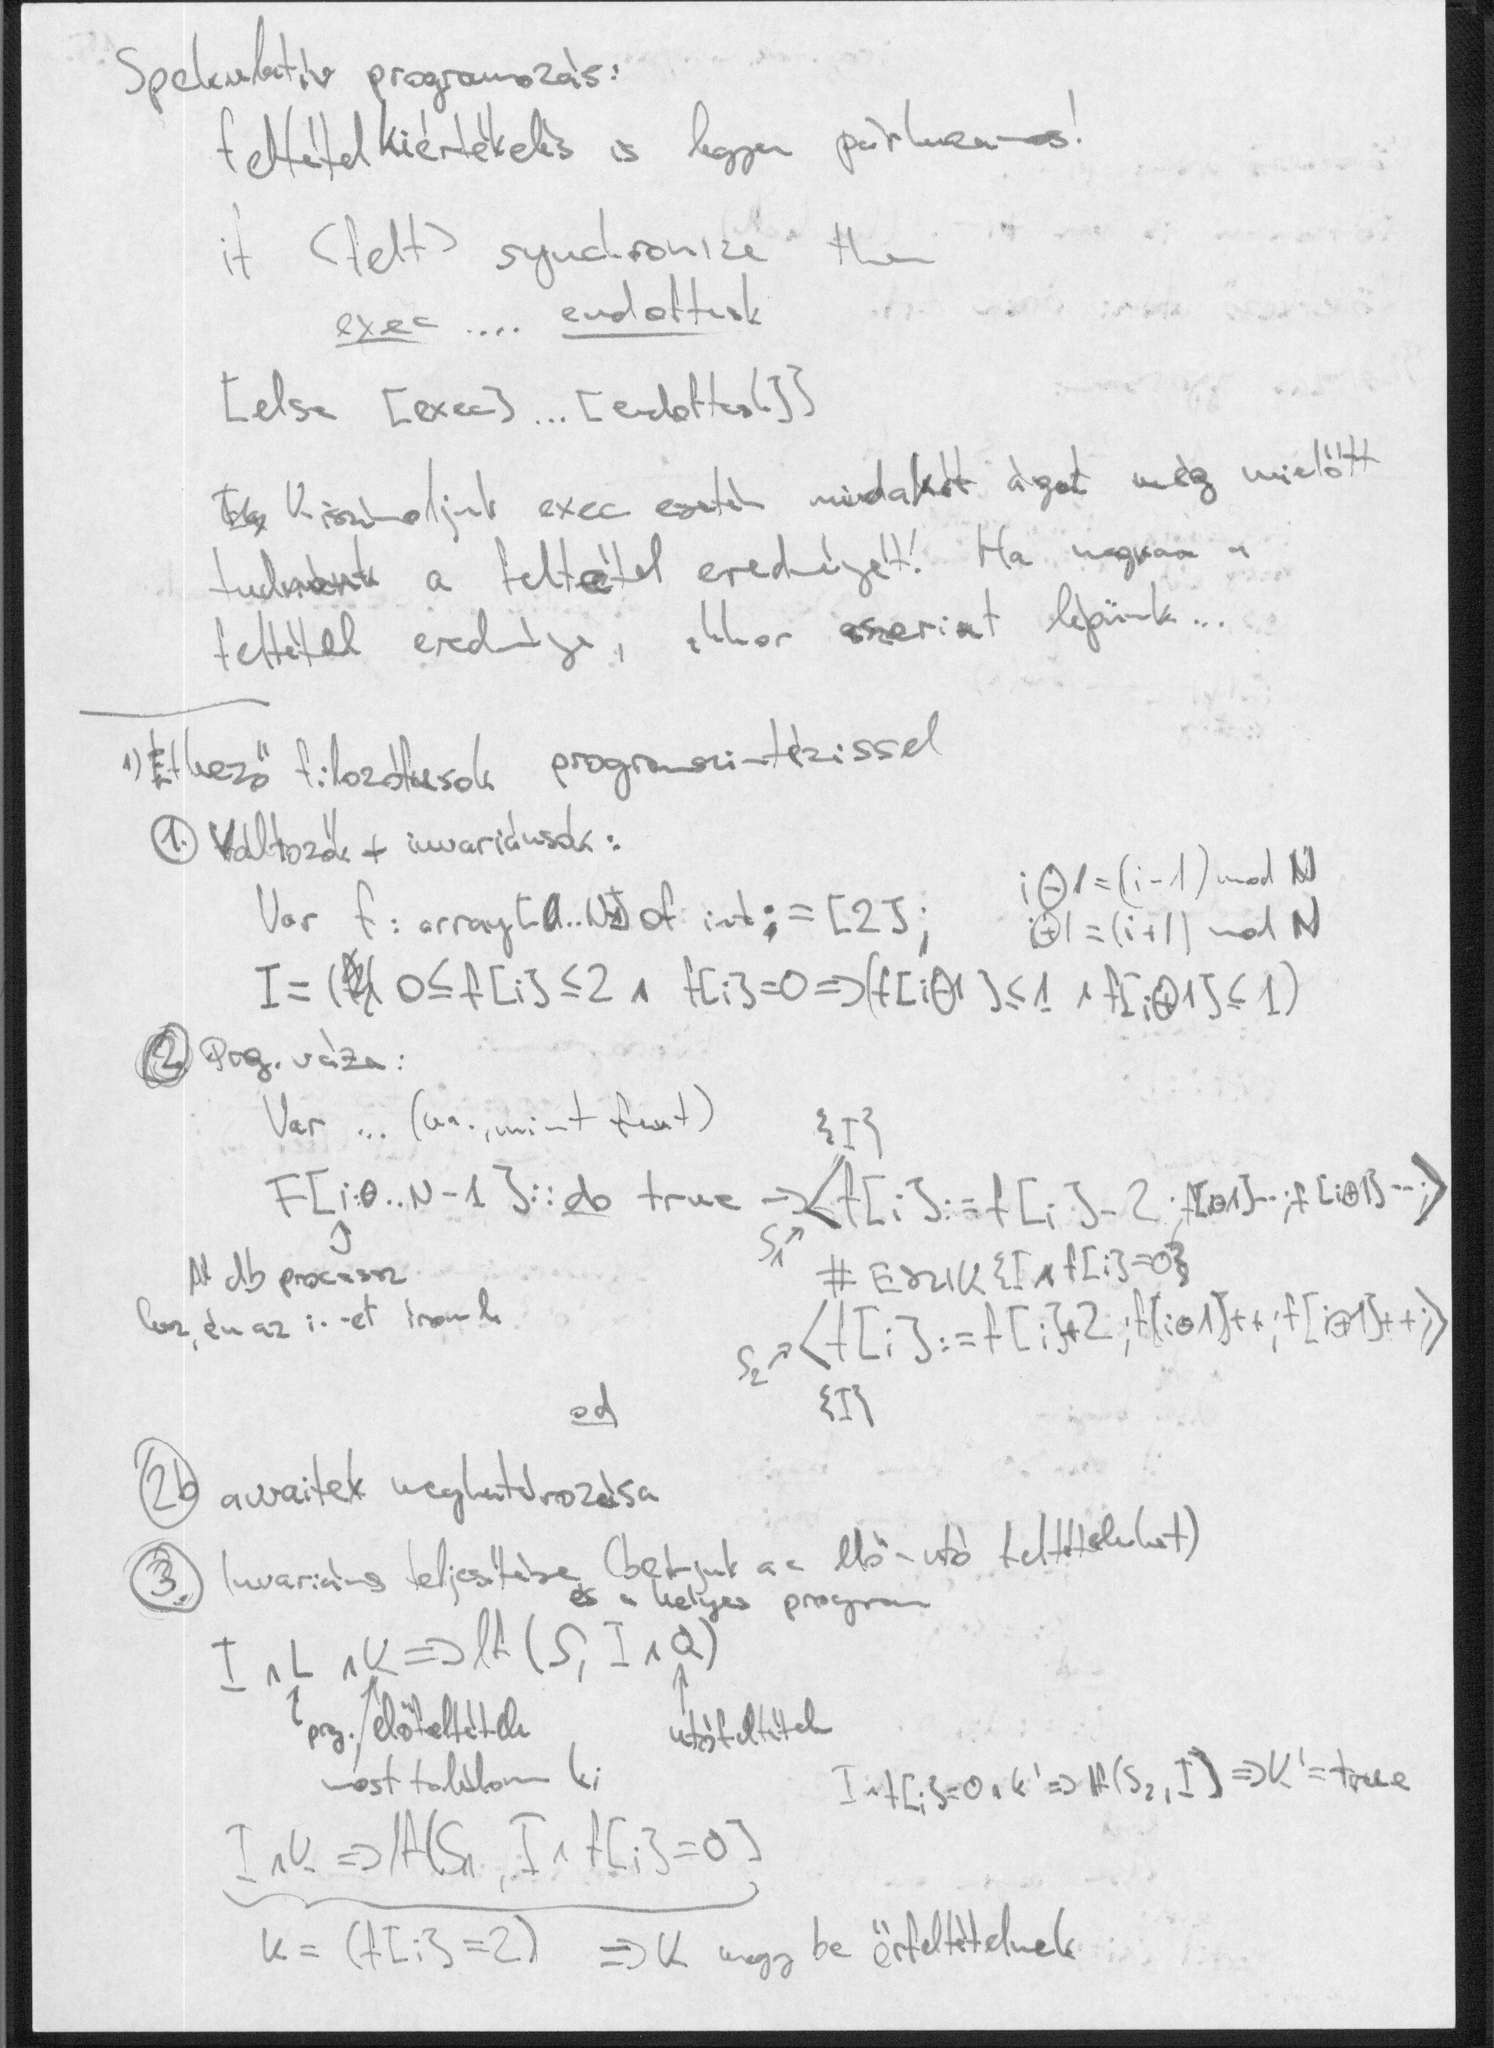 Spekulatív programozás:
feltételkiértékelés is legyen párhuzamos!
if (felt) synchronize then
exec .... endoftask
[else [exec] ... [endoftask]]
Kiszámoljuk exec esetén mindakét ágat még mielőtt
tudnánk a feltétel eredményét! Ha megvan a
feltétel eredménye, akkor aszerint lépünk...
1) Étkező filozófusok programszintézissel
1. Változók + invariánsok:
i⊖1=(i-1) mod N
Var f: array[0..N-1] of int := [2];
i⊕1=(i+1) mod N
I = ( 0≤f[i]≤2 ∧ f[i]=0 => (f[i⊖1]≤1 ∧ f[i⊕1]≤1)
2. Prog. váza:
Var ... (ua., mint fent)
{I}
F[i:0..N-1]:: do true -> <f[i]:=f[i]-2; f[i⊖1]--; f[i⊕1]--;>
S1
# ESZIK {I ∧ f[i]=0}
N db processz
lesz, én az i.-et írom le
S2 <f[i]:=f[i]+2; f[i⊖1]++; f[i⊕1]++;>
od
{I}
2b awaitek meghatározása
3. Invariáns teljesítése (beírjuk az elő-utó feltételeket)
és a helyes program
I ∧ L ∧ K => lf(S, I ∧ Q)
prg. előfeltétele utófeltétele
most találom ki
I ∧ f[i]=0 ∧ K' => lf(S2, I) => K'=true
I ∧ K => lf(S1, I ∧ f[i]=0)
K = (f[i]=2) => K megy be őrfeltételnek